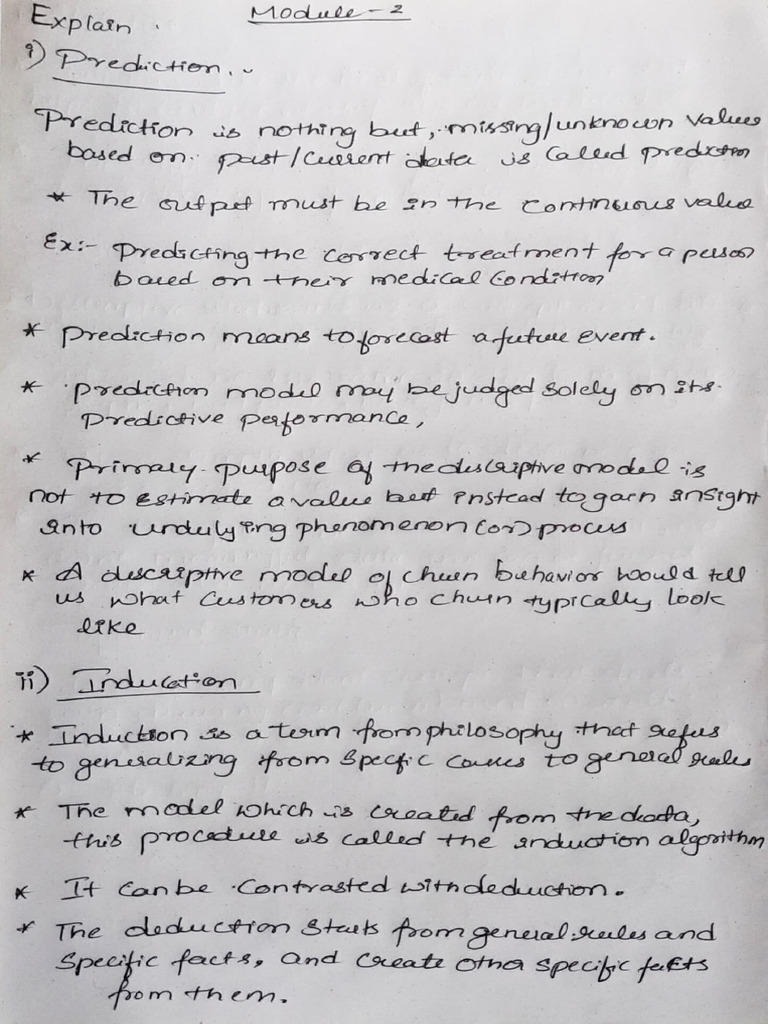 Explain.
Module-2
i) Prediction..
Prediction is nothing but, missing/unknown values
based on past/current data is called prediction
* The output must be in the continuous value
Ex:- Predicting the correct treatment for a person
based on their medical condition
* prediction means to forecast a future event.
* prediction model may be judged solely on its
Predictive performance,
* Primary purpose of the descriptive model is
not to estimate a value but instead to gain insight
into underlying phenomenon (or) process
* A descriptive model of churn behavior would tell
us what customers who churn typically look
like
ii) Induction
* Induction is a term from philosophy that refers
to generalizing from specific causes to general rules
* The model which is created from the data,
this procedure is called the induction algorithm
* It can be contrasted with deduction.
* The deduction starts from general rules and
specific facts, and create other specific facts
from them.